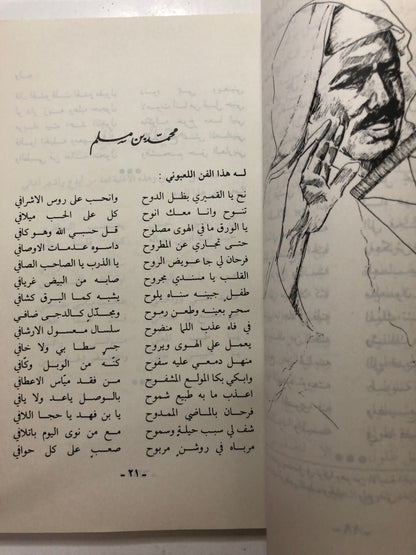 محمد بن مسلم
له هذا الفن اللعبوني :
نح يا القميري بظل الدوح وانحب على روس الاشرافي
تنوح وانا معك انوح كل على الحب ميلافي
يا الورق ما في الهوى مصلوح قل حسبي الله وهو كافي
حتى تجاري عن المطروح داسوه عدمات الاوصافي
فرحان لي جاعويض الروح يا الذرب يا الصاحب الصافي
القلب يا مسندي مجروح صابه من البيض غريافي
طفل جبينه سناه يلوح يشبه كما البرق كشافي
سحر بعينه وطعن رموح ومجدل كالدجى ضافي
في فاه عذب اللما منضوح سلسال معسول الارشافي
يعمل على الهوى ويروح جر سطا بي ولا خافي
منهل دمعي عليه سفوح كنه من الوبل وكافي
وابكي بكا المولع المشفوح من فقد مياس الاعطافي
اعذب ما به طبيع شموح بالوصل ياعد ولا يافي
فرحان بالماضي الممدوح يا بن فهد يا حجا اللافي
شف لي سبب حيلة وسموح مع من نوى اليوم باتلافي
مرباه في روشن مربوح صعب على كل حوافي
- ٢١ -